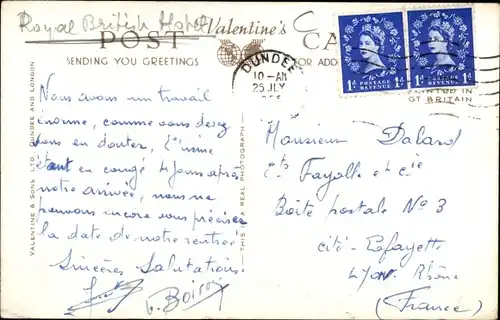 Royal British Hotel
Valentine's
POST CA
SENDING YOU GREETINGS
FOR ADD
DUNDEE
10-AM
25 JLY
POSTAGE
REVENUE
1D 1D
POSTAGE
REVENUE
1D 1D
PRINTED IN
GT BRITAIN
VALENTINE & SONS LTD. DUNDEE AND LONDON
THIS IS A REAL PHOTOGRAPH
Nous avons un travail
énorme, comme vous devez
vous en douter, l'usine
étant en congé 4 jours après
notre arrivée, nous ne
pouvons encore vous préciser
la date de notre rentrée
Sincères Salutations.
Boiron
Monsieur Dalard
Ets Fayolle et cie
Boîte postale No 3
cité Lafayette
Lyon Rhône
(France)